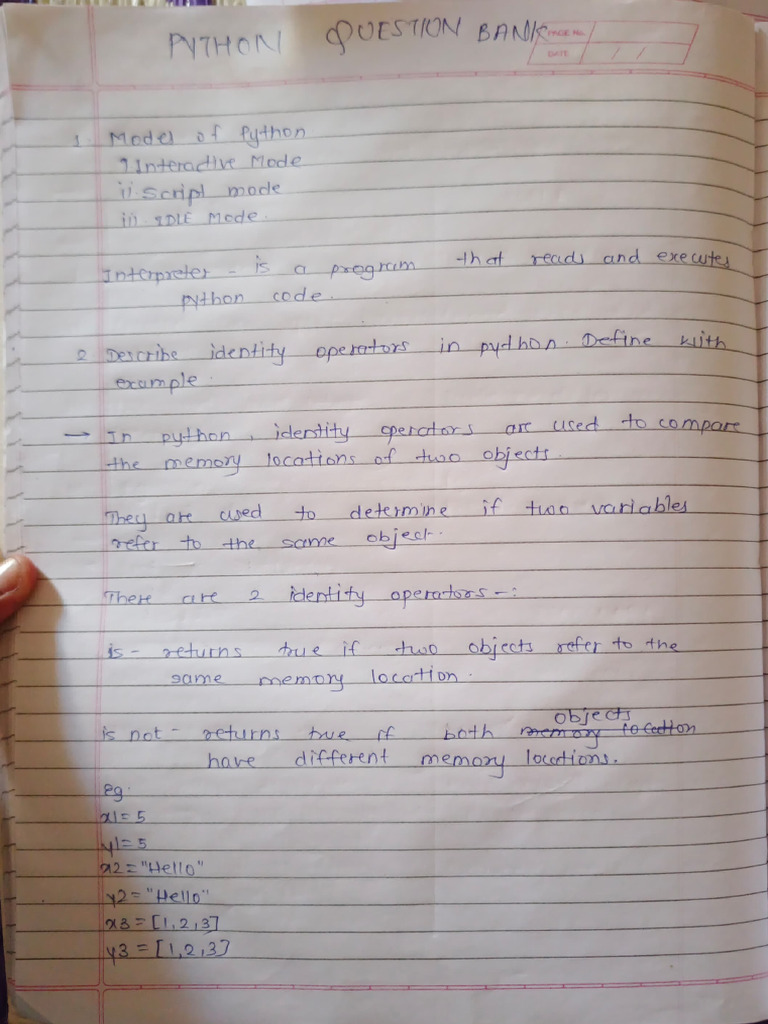 PYTHON QUESTION BANK
PAGE No.
DATE / /
1. Modes of Python
i Interactive Mode
ii. Script mode
iii. IDLE Mode.
Interpreter - is a program that reads and executes
python code.
2 Describe identity operators in python. Define with
example.
→ In python, identity operators are used to compare
the memory locations of two objects.
They are used to determine if two variables
refer to the same object.
There are 2 identity operators -:
is - returns true if two objects refer to the
same memory location.
objects
is not - returns true if both memory location
have different memory locations.
Eg.
x1 = 5
y1 = 5
x2 = "Hello"
y2 = "Hello"
x3 = [1, 2, 3]
y3 = [1, 2, 3]